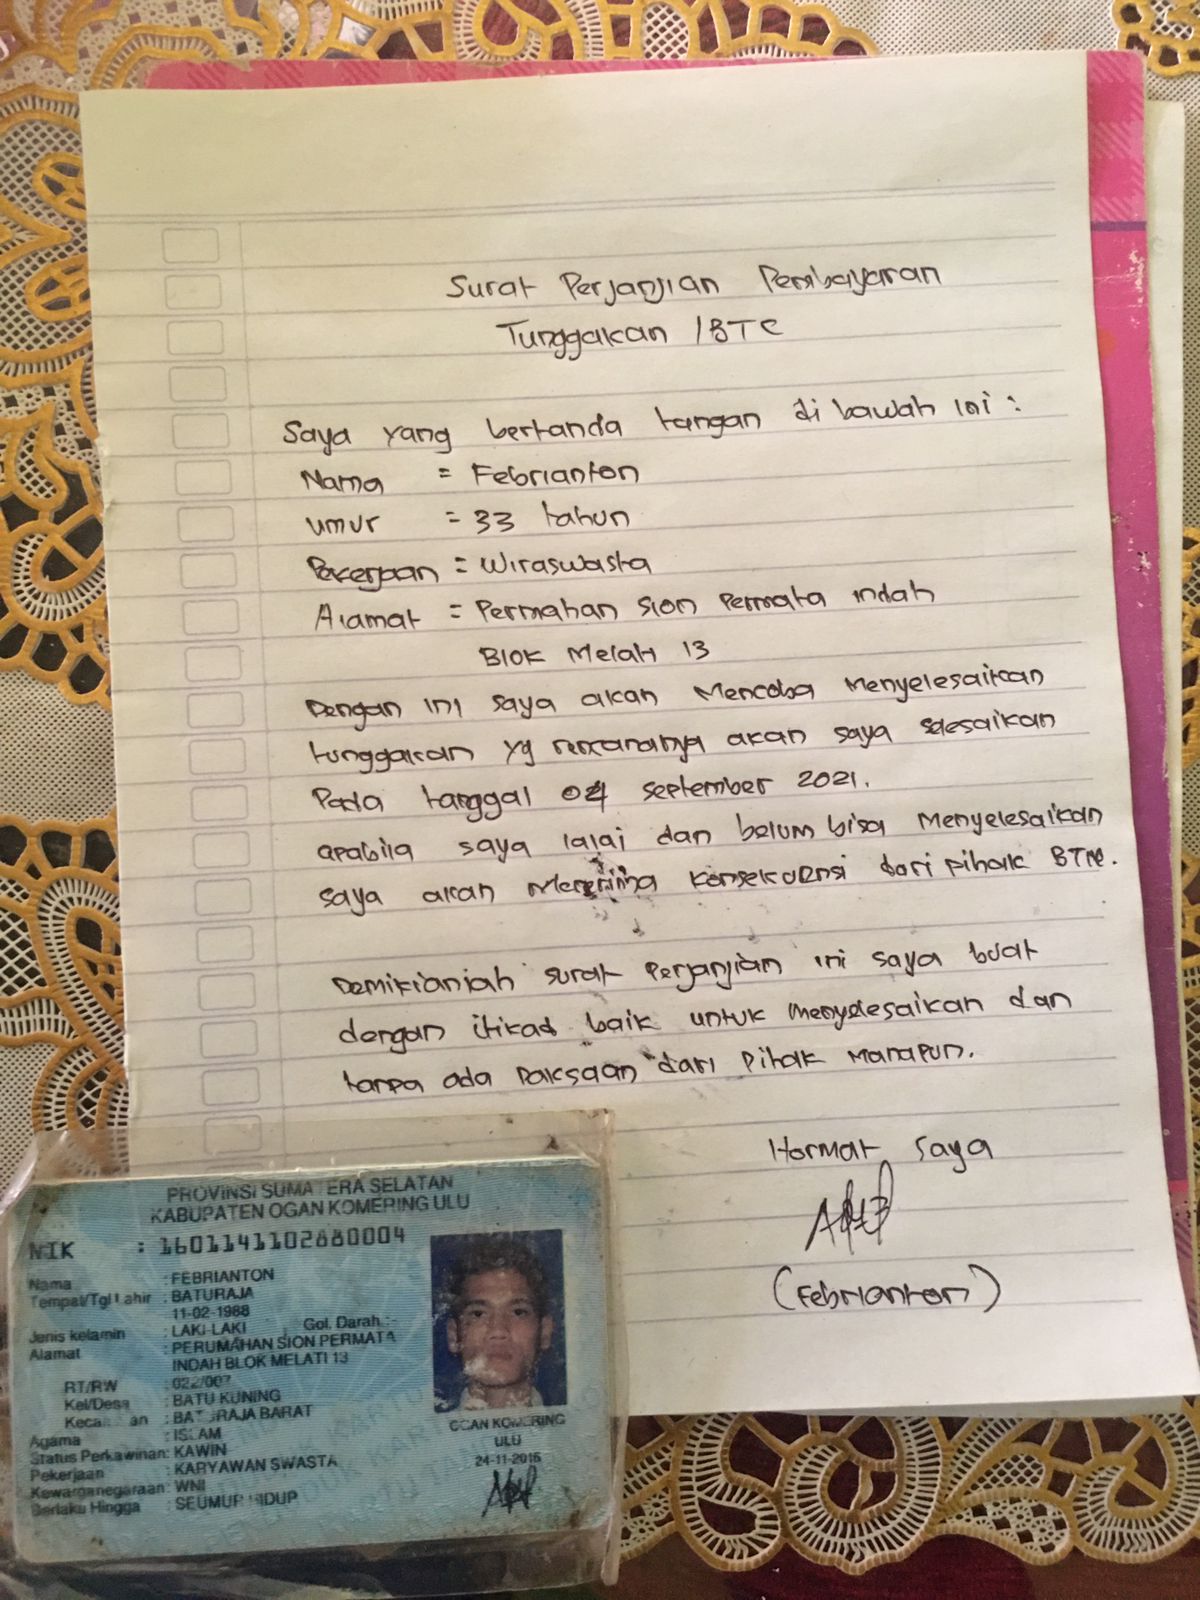 Surat Perjanjian Pembayaran
Tunggakan /BTC
Saya yang bertanda tangan di bawah ini :
Nama = Febrianton
umur = 33 tahun
Pekerjaan = Wiraswasta
Alamat = Permahan Sion Permata indah
Blok Melati 13
Dengan ini saya akan Mencoba Menyelesaikan
tunggakan yg rencananya akan saya selesaikan
Pada tanggal 04 September 2021.
apabila saya lalai dan belum bisa Menyelesaikan
saya akan Menerima Konsekuensi dari Pihak
Demikianlah surat Perjanjian ini saya buat
dengan itikad baik untuk Menyelesaikan dan
tanpa ada Paksaan dari Pihak Manapun.
Hormat saya
(Febrianton)
PROVINSI SUMATERA SELATAN
KABUPATEN OGAN KOMERING ULU
NIK : 1601141102880004
Nama : FEBRIANTON
Tempat/Tgl Lahir : BATURAJA
11-02-1988
Jenis kelamin : LAKI-LAKI Gol. Darah :-
Alamat : PERUMAHAN SION PERMATA
INDAH BLOK MELATI 13
RT/RW : 022/007
Kel/Desa : BATU KUNING
Kecamatan : BATURAJA BARAT
Agama : ISLAM
Status Perkawinan: KAWIN
Pekerjaan : KARYAWAN SWASTA
Kewarganegaraan: WNI
Berlaku Hingga : SEUMUR HIDUP
OGAN KOMERING
ULU
24-11-2016